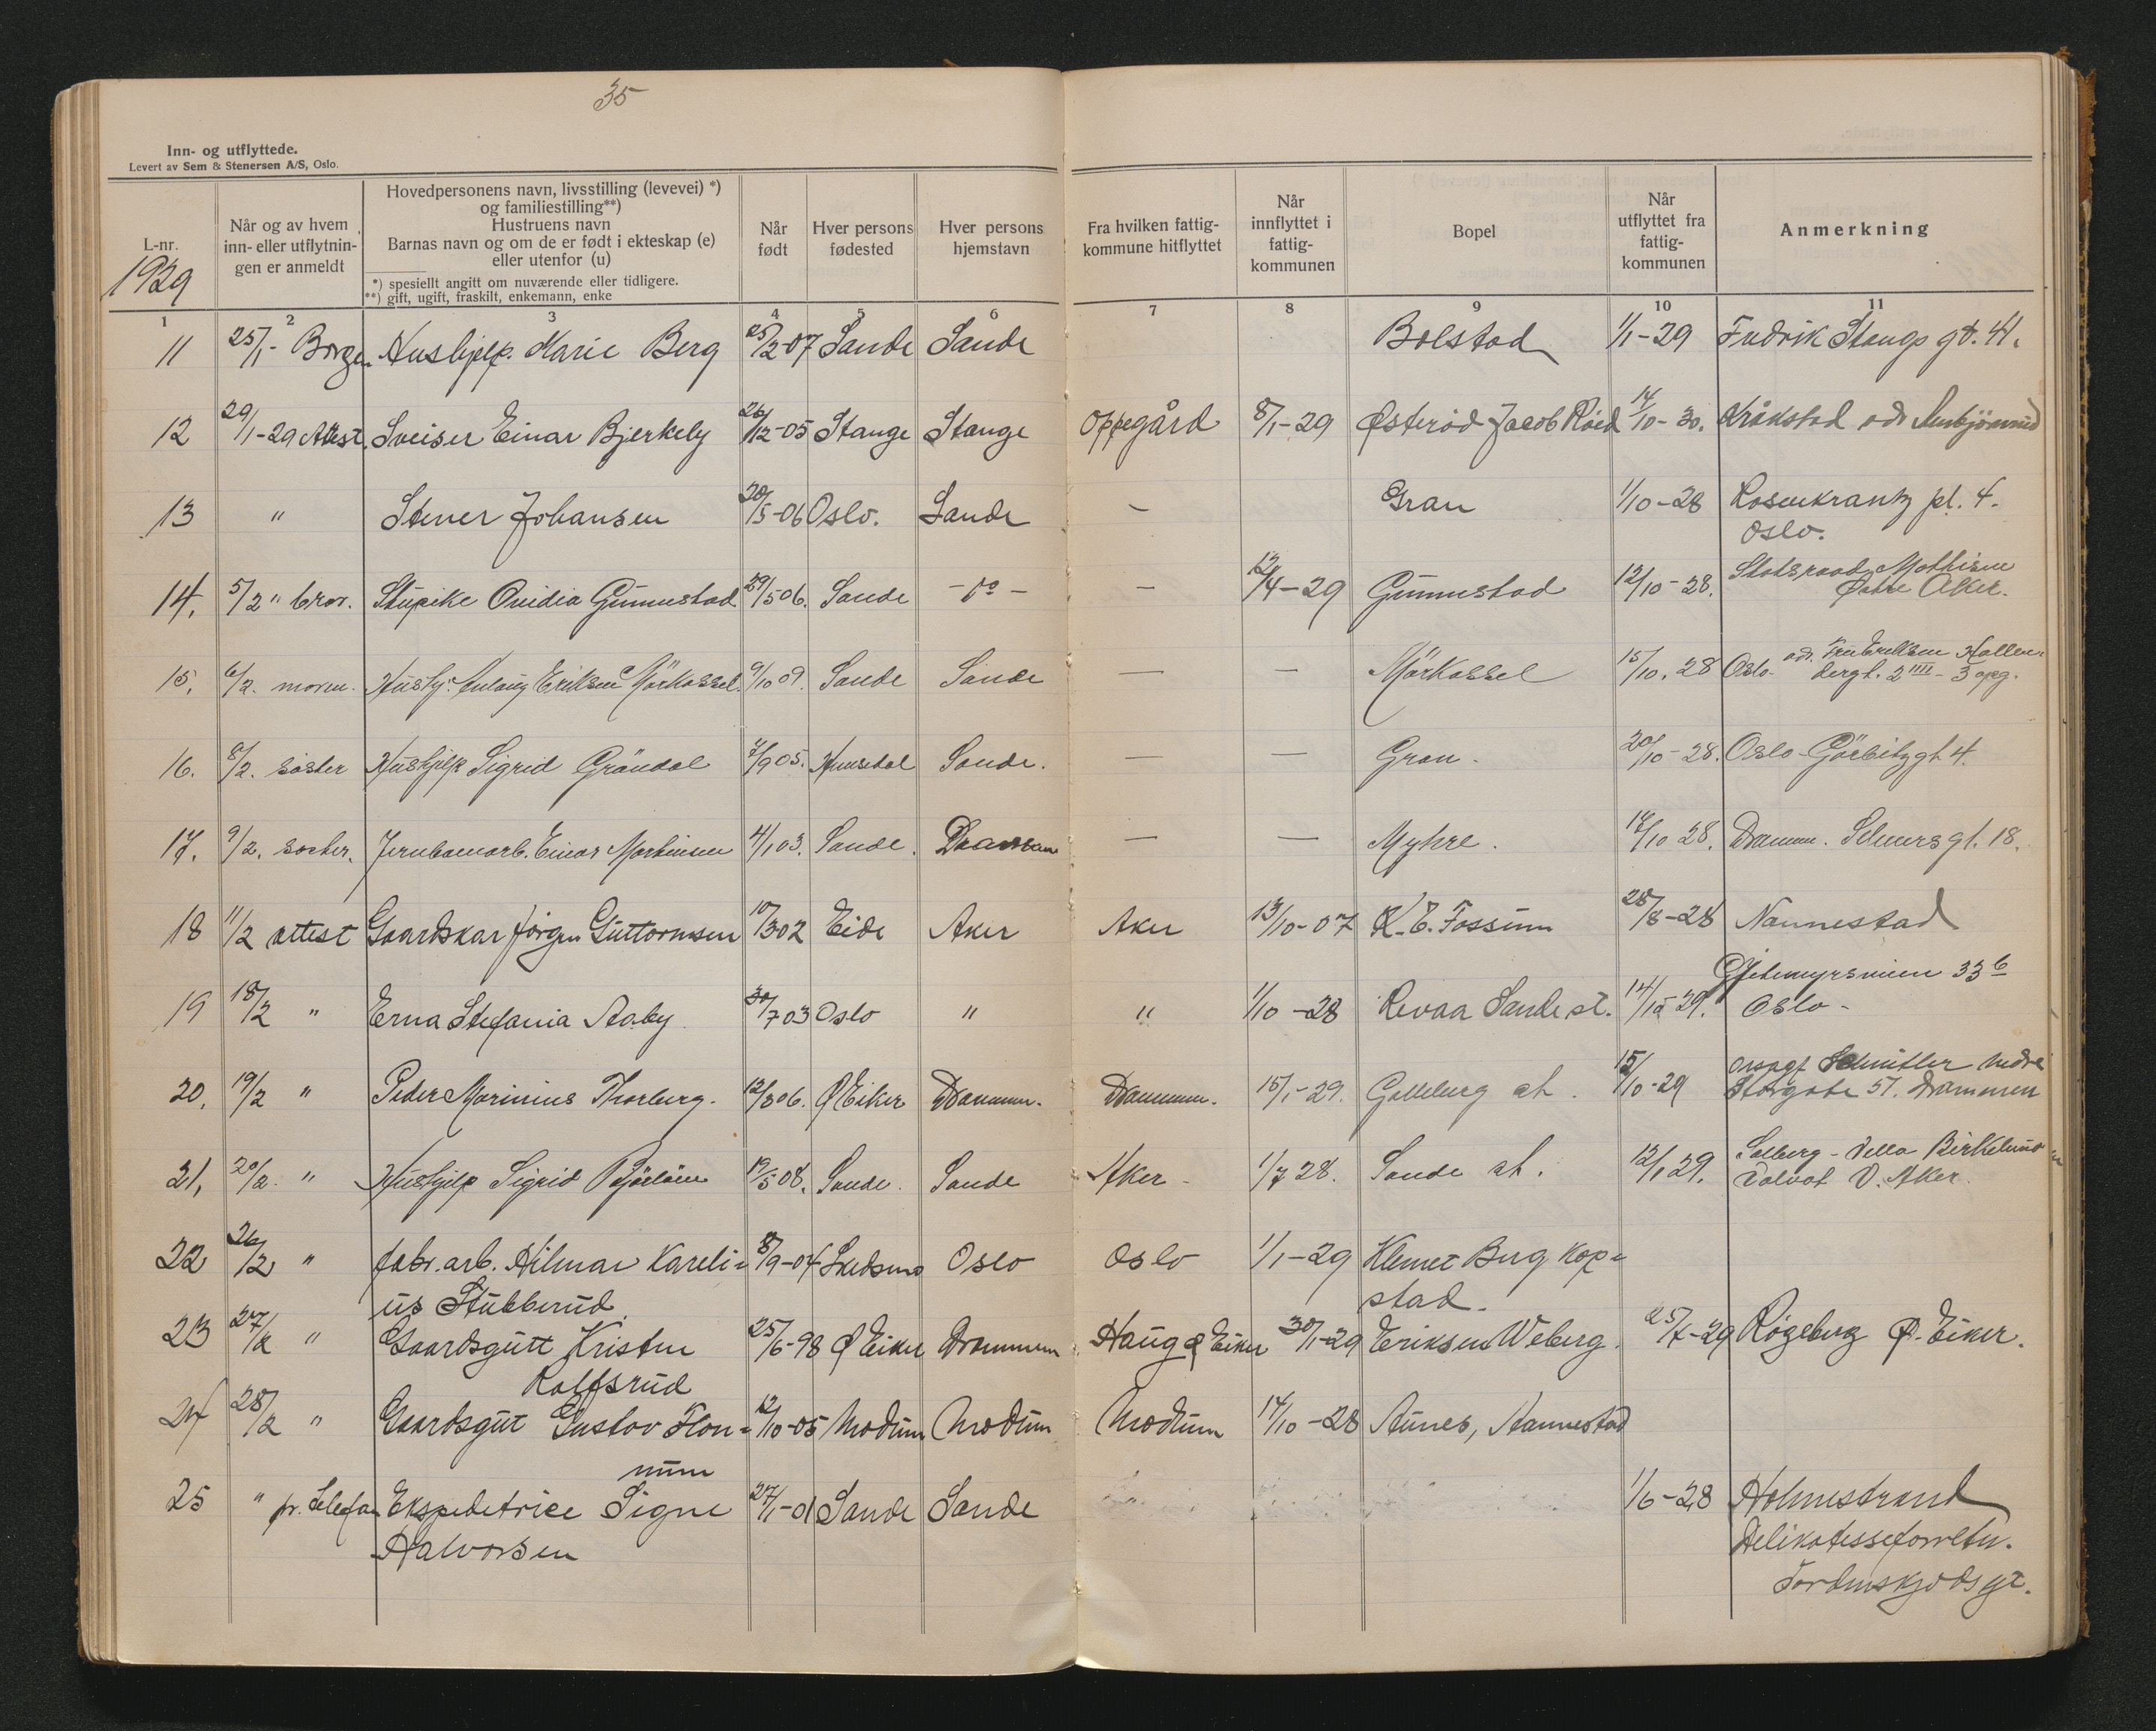 35
Inn- og utflyttede.
Levert av Sem & Stenersen A/S, Oslo.
L-nr.
1929
Når og av hvem inn- eller utflytnin- gen er anmeldt
Hovedpersonens navn, livsstilling (levevei) *)
og familiestilling**)
Hustruens navn
Barnas navn og om de er født i ekteskap (e)
eller utenfor (u)
*) spesiellt angitt om nuværende eller tidligere.
**) gift, ugift, fraskilt, enkemann, enke
Når født
Hver persons fødested
Hver persons hjemstavn
Fra hvilken fattig- kommune hitflyttet
Når innflyttet i fattig- kommunen
Bopel
Når utflyttet fra fattig- kommunen
Anmerkning
1 2 3 4 5 6 7 8 9 10 11
11 25/1- Borgen Hushjelp. Marie Berg 25/2-07 Sande Sande Bolstad 1/1-29 Fredrik Stangs gt. 41.
12 29/1-29 Attest. Sveiser Einar Bjerkely 26/12-05 Stange Stange Oppegård 8/1-29 Østerød Jacob Røed 14/10-30. Kråkstad adr
13 " Stener Johansen 20/5-06 Oslo. Sande - Gran 1/10-28 Rosenkrantz pl. 4.
Oslo.
14. 5/2 " bror. Stupike Ovidia Gunnestad 29/5 06. Sande - do - - 12/4-29 Gunnestad 12/10-28. Statsraad Mathisen
Østre Aker.
15. 6/2. moren. Hushj. Eriksen Mörkassel 9/10 09. Sande Sande - - Mörkassel 15/10.28 Oslo. adr. Eriksen
dergt. 2 IIII - 3 opg.
16. 8/2. søster Hushjelp Sigrid Gröndal 7/9 05. Sande. - - Gran. 20/10-28. Oslo Görbitzgt. 4.
17. 9/2. søster. Jernbanearb. Einar Martinsen 4/1 03. Sande. Drammen - - Myhre. 14/10 28. Dramm. gt. 18.
18 11/2 attest Gaardskar Jörgen Guttormsen 10/3 02 Eide Aker Aker 13/10-07 K. E. Fossum 28/8-28 Nannestad
19 18/2 " Erna Stefania Aaby 30/7 03 Oslo " " 1/10-28 Revaa Sande st. 14/10 29. Gjetemyrsveien 33 b
Oslo-
20. 19/2 " Peder Marinius Thorberg. 12/3 06. Ø Eiker Drammen. Drammen. 15/1-29. Galleberg st. 15/10-29 Schnitler Nedre
Storgate 51. Drammen
21. 20/2. " Hushjelp Sigrid 19/5 08. Sande. Sande Aker - 1/7 28. Sande st. 12/1 29. Solberg - Villa Birkelund
V. Aker.
22 26/2 " fabr. arb. Hilmar Kareli= 8/9-04 Skedsmo Oslo Oslo 1/1-29 Klemet Berg Kop=
us Stubberud. stad.
23 27/2 " Gaardsgutt Kristen 25/6-98 Ø Eiker Drammen Haug Ø Eiker 30/1-29 Eriksen Weberg. 25/7-29 Rögeberg Ø. Eiker.
Rolfsrud
24 28/2 " Gaardsgut Gustav Flon= 12/10-05 Modum Modum Modum 14/10-28 Aunes, Hannestad
num
25 " pr. telefon Ekspeditrice Signe 27/1-01 Sande Sande 1/6-28 Holmestrand
Halvorsen Delikatesseforretn.
Tordenskjolds gt.